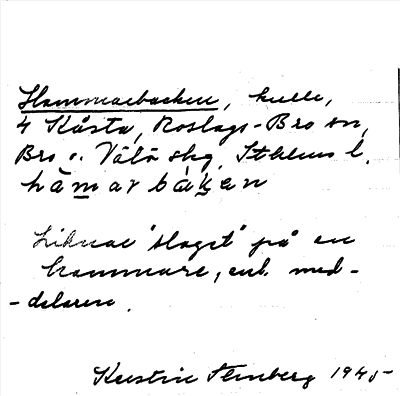 Hammarbacken, kulle,
4 Kårsta, Roslags-Bro sn,
Bro o. Vätö skg, Sthlms l.
hàmarbàken
Liknar "slaget" på en
hammare, enl. med-
-delaren.
Kerstin Stenberg 1945